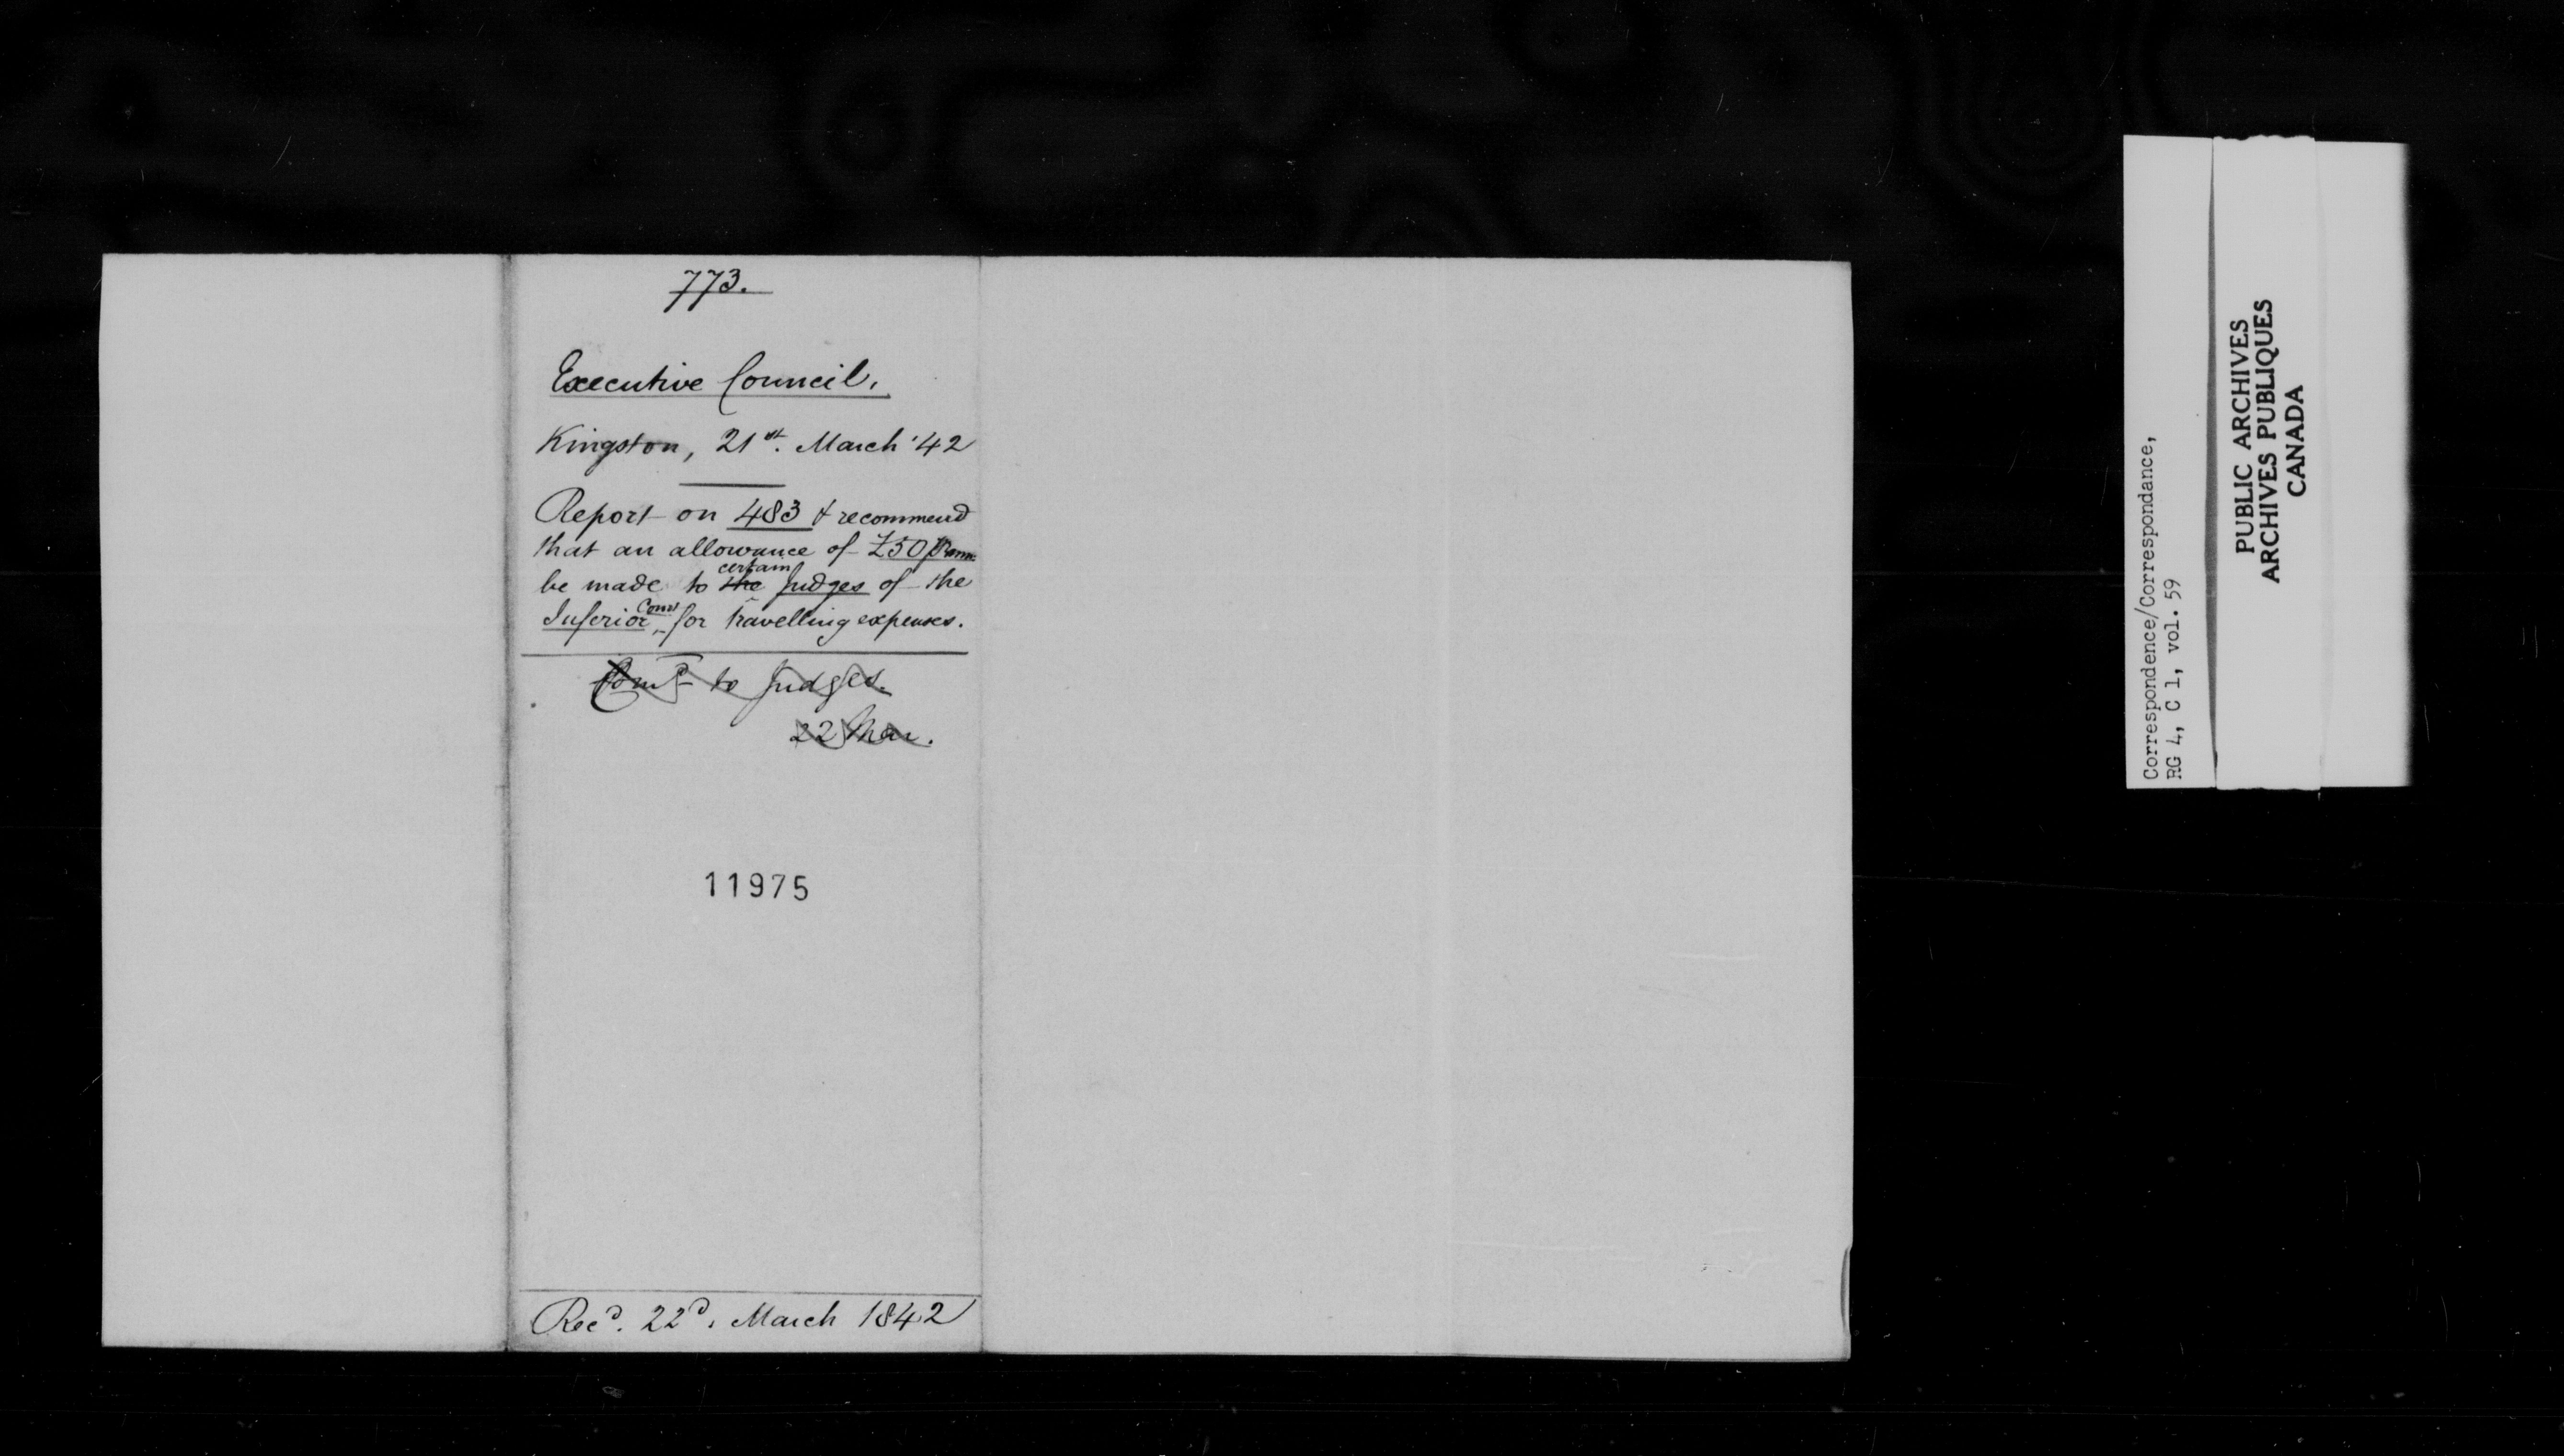 773.
Executive Council.
Kingston, 21st. March '42
Report on 483 & recommend
that an allowance of £50 p ann
be made to the certain Judges of the
Inferior Court for travelling expenses.
Comd to Judges.
22 Mar.
11975
Recd. 22d. March 1842
Correspondence/Correspondance,
RG 4, C 1, vol. 59
PUBLIC ARCHIVES
ARCHIVES PUBLIQUES
CANADA